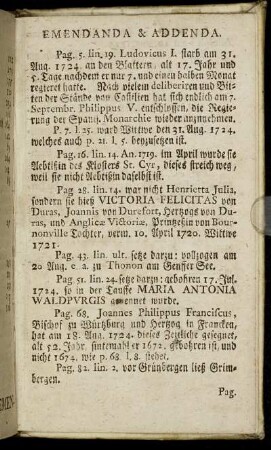 EMENDANDA & ADDENDA.
Pag. 5. lin. 19. Ludovicus I. starb am 31.
Aug. 1724. an den Blattern, alt 17. Jahr und
5. Tage nachdem er nur 7. und einen halben Monat
regieret hatte. Nach vielem deliberiren und Bit-
ten der Stände von Castilien hat sich endlich am 7.
Septembr. Philippus V. entschlossen, die Regie-
rung der Spanis. Monarchie wieder anzunehmen.
P. 7. l. 25. ward Witwe den 31. Aug. 1724.
welches auch p. 21. l. 5. beyzusetzen ist.
Pag. 16. lin. 14. An. 1719. im April wurde sie
Aebtißin des Klosters St. Cyr, dieses streich weg,
weil sie nicht Aebtißin daselbst ist.
Pag 28. lin. 14. war nicht Henrietta Julia,
sondern sie hieß VICTORIA FELICITAS von
Duras, Joannis von Duresort, Hertzogs von Du-
ras, und Angelicæ Victoriæ, Printzeßin von Bour-
nonville Tochter, verm. 10. April 1720. Wittwe
1721.
Pag. 43. lin. ult. setze darzu: vollzogen am
20 Aug. e. a. zu Thonon am Genffer See.
Pag. 51. lin. 24. setze darzu: gebohren 17. Jul.
1724. so in der Tauffe MARIA ANTONIA
WALDPVRGIS genennet wurde.
Pag. 68. Joannes Philippus Franciscus,
Bischof zu Würtzburg und Hertzog in Francken,
hat am 18. Aug. 1724. dieses Zeitliche gesegnet,
alt 52. Jahr, sintemahl er 1672. gebohren ist, und
nicht 1674. wie p. 68. l. 8. stehet.
Pag. 82. lin. 2. vor Grünbergen ließ Grim-
bergen.
Pag.